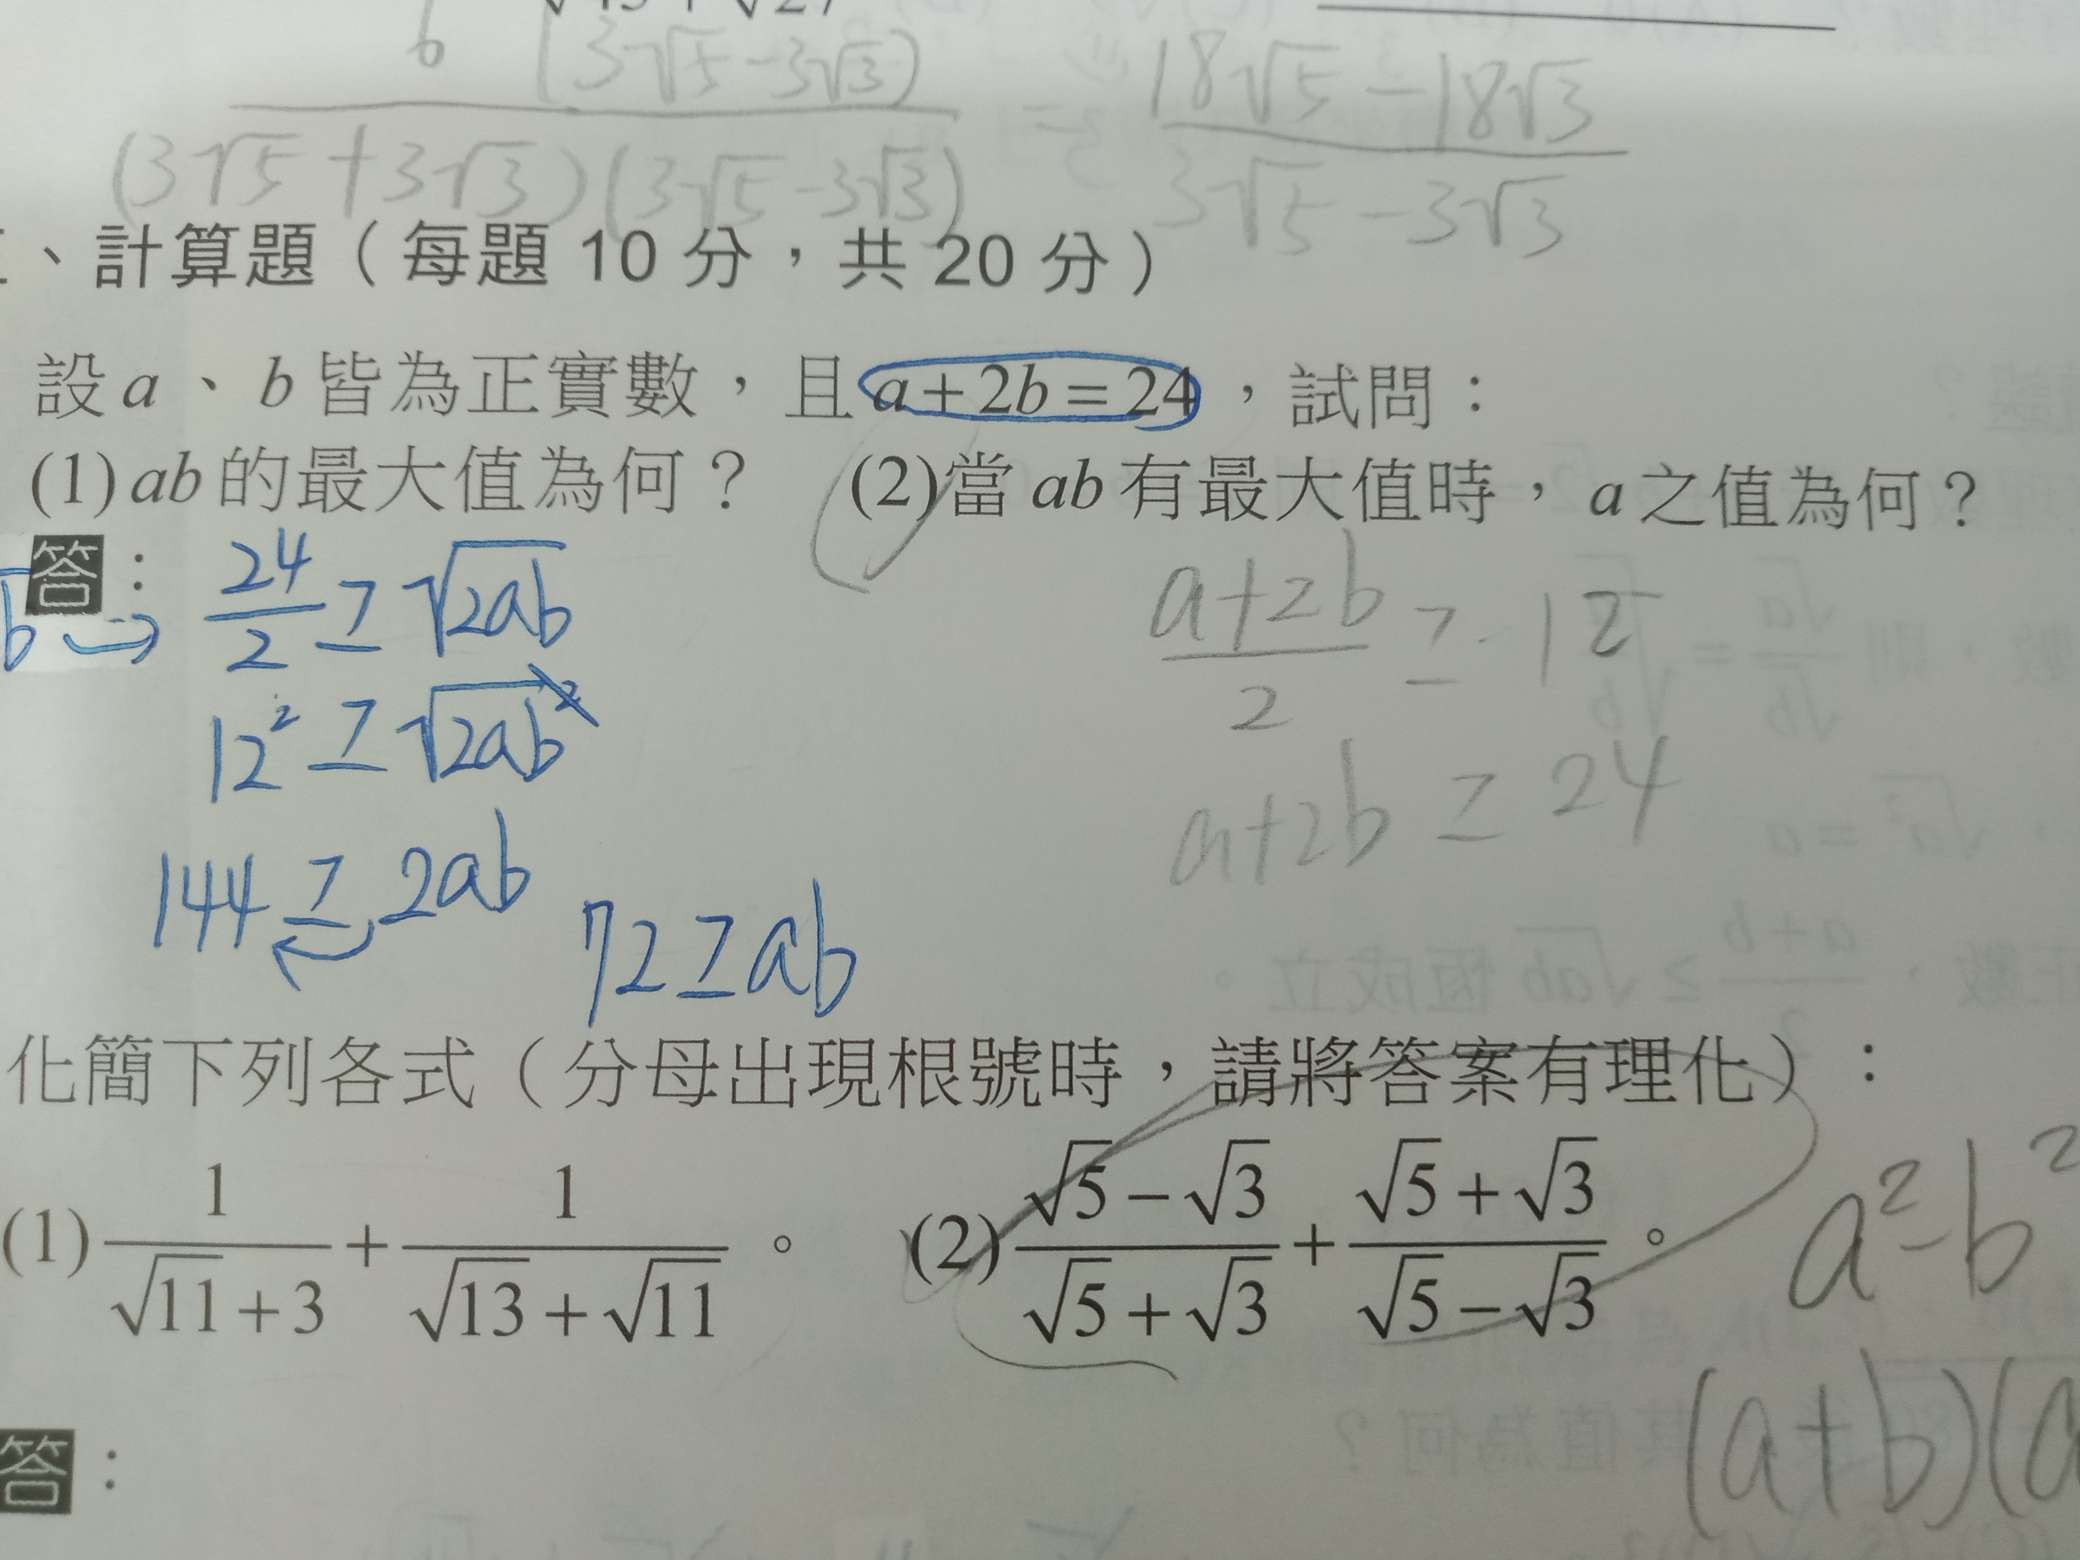 6 (3√5-3√3)
(3√5+3√3)(3√5-3√3) = 18√5-18√3
3√5-3√3
、計算題（每題 10 分，共 20 分）
設 a 、 b 皆為正實數，且 a+2b=24 ，試問：
(1) ab 的最大值為何？ (2)當 ab 有最大值時， a 之值為何？
答：
b → 24/2 ≥ √2ab
12² ≥ √2ab²
144 ≥ 2ab
72 ≥ ab
a+2b/2 ≥ 12
a+2b ≥ 24
化簡下列各式（分母出現根號時，請將答案有理化）：
(1) 1/(√11+3) + 1/(√13+√11) 。 (2) (√5-√3)/(√5+√3) + (√5+√3)/(√5-√3) 。
a²-b²
(a+b)(a
答：